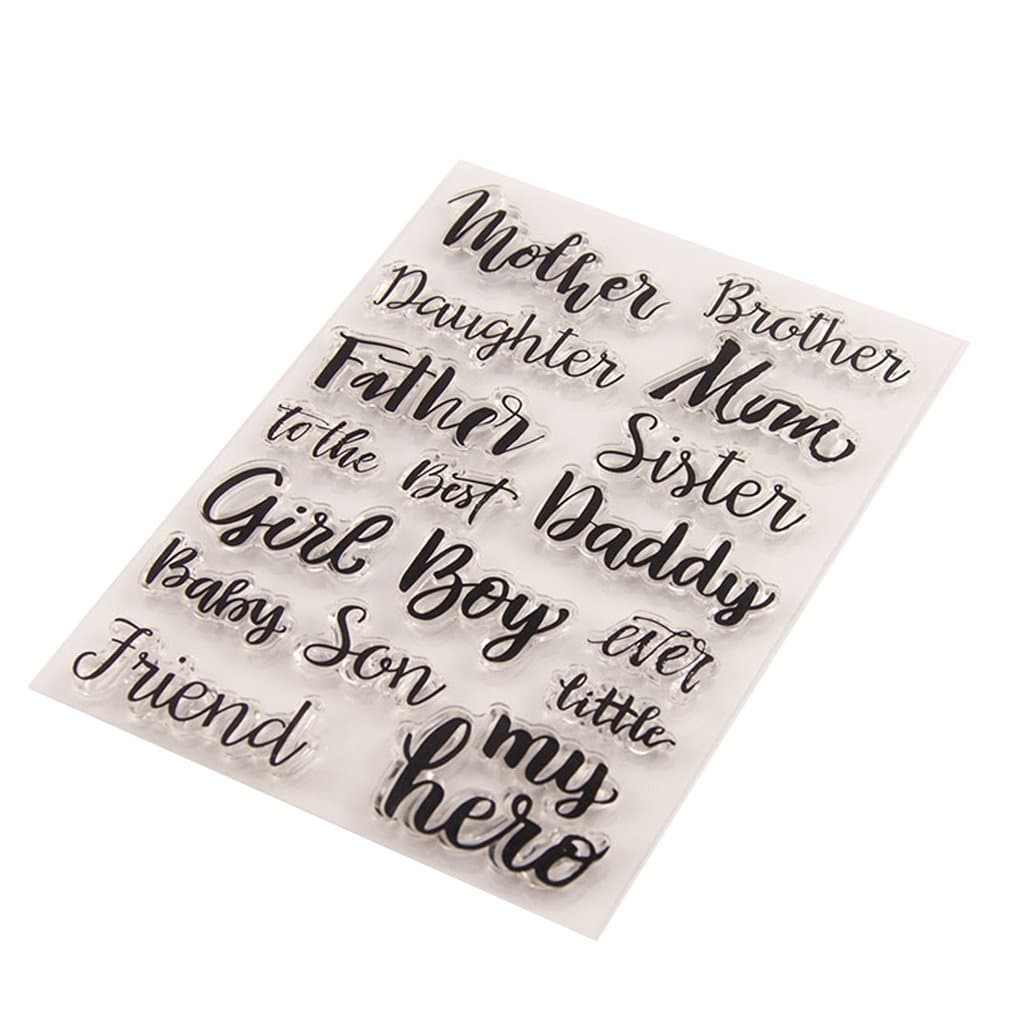 Mother
Brother
Daughter
Mom
Father
Sister
to the
Best
Daddy
Girl
Boy
Baby
Son
ever
little
Friend
my
hero